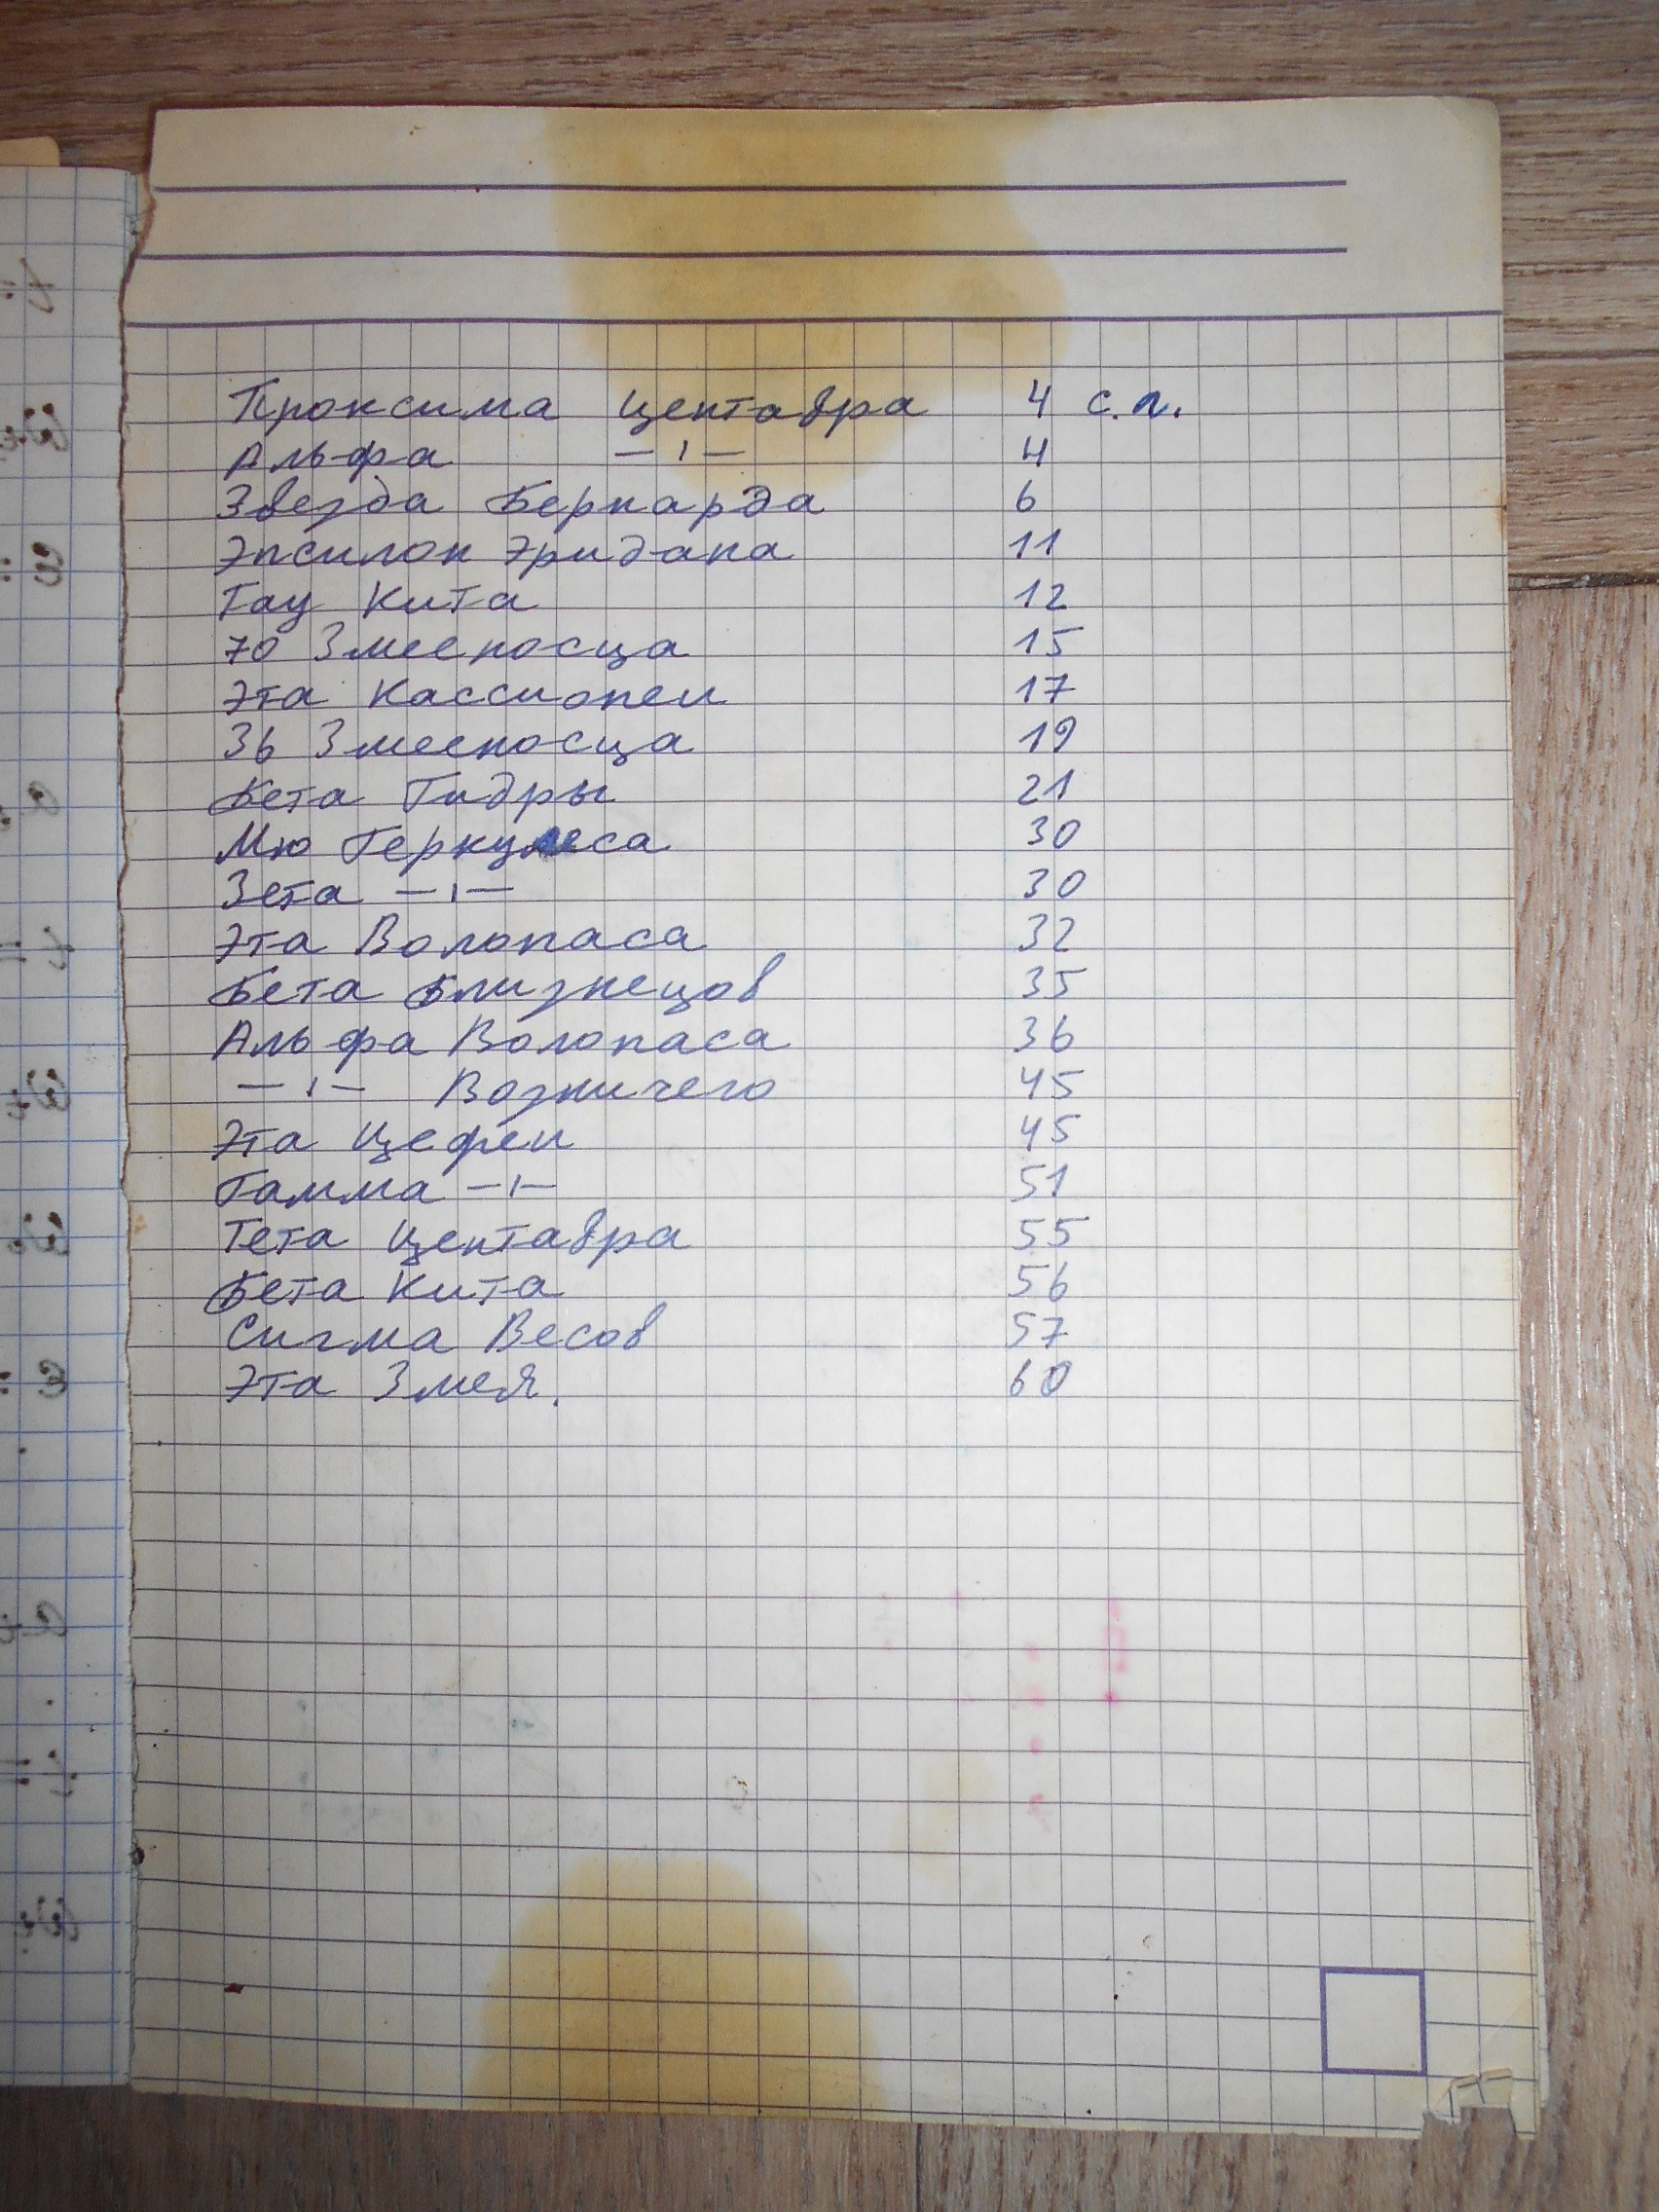 Проксима Центавра 4 с.л.
Альфа —ı— 4
Звезда Бернарда 6
Эпсилон Эридана 11
Тау Кита 12
70 Змееносца 15
Эта Кассиопеи 17
36 Змееносца 19
Бета Гидры 21
Мю Геркулеса 30
Зета —ı— 30
Эта Волопаса 32
Бета Близнецов 35
Альфа Волопаса 36
—ı— Возничего 45
Эта Цефеи 45
Гамма —ı— 51
Тета Центавра 55
Бета Кита 56
Сигма Весов 57
Эта Змея. 60